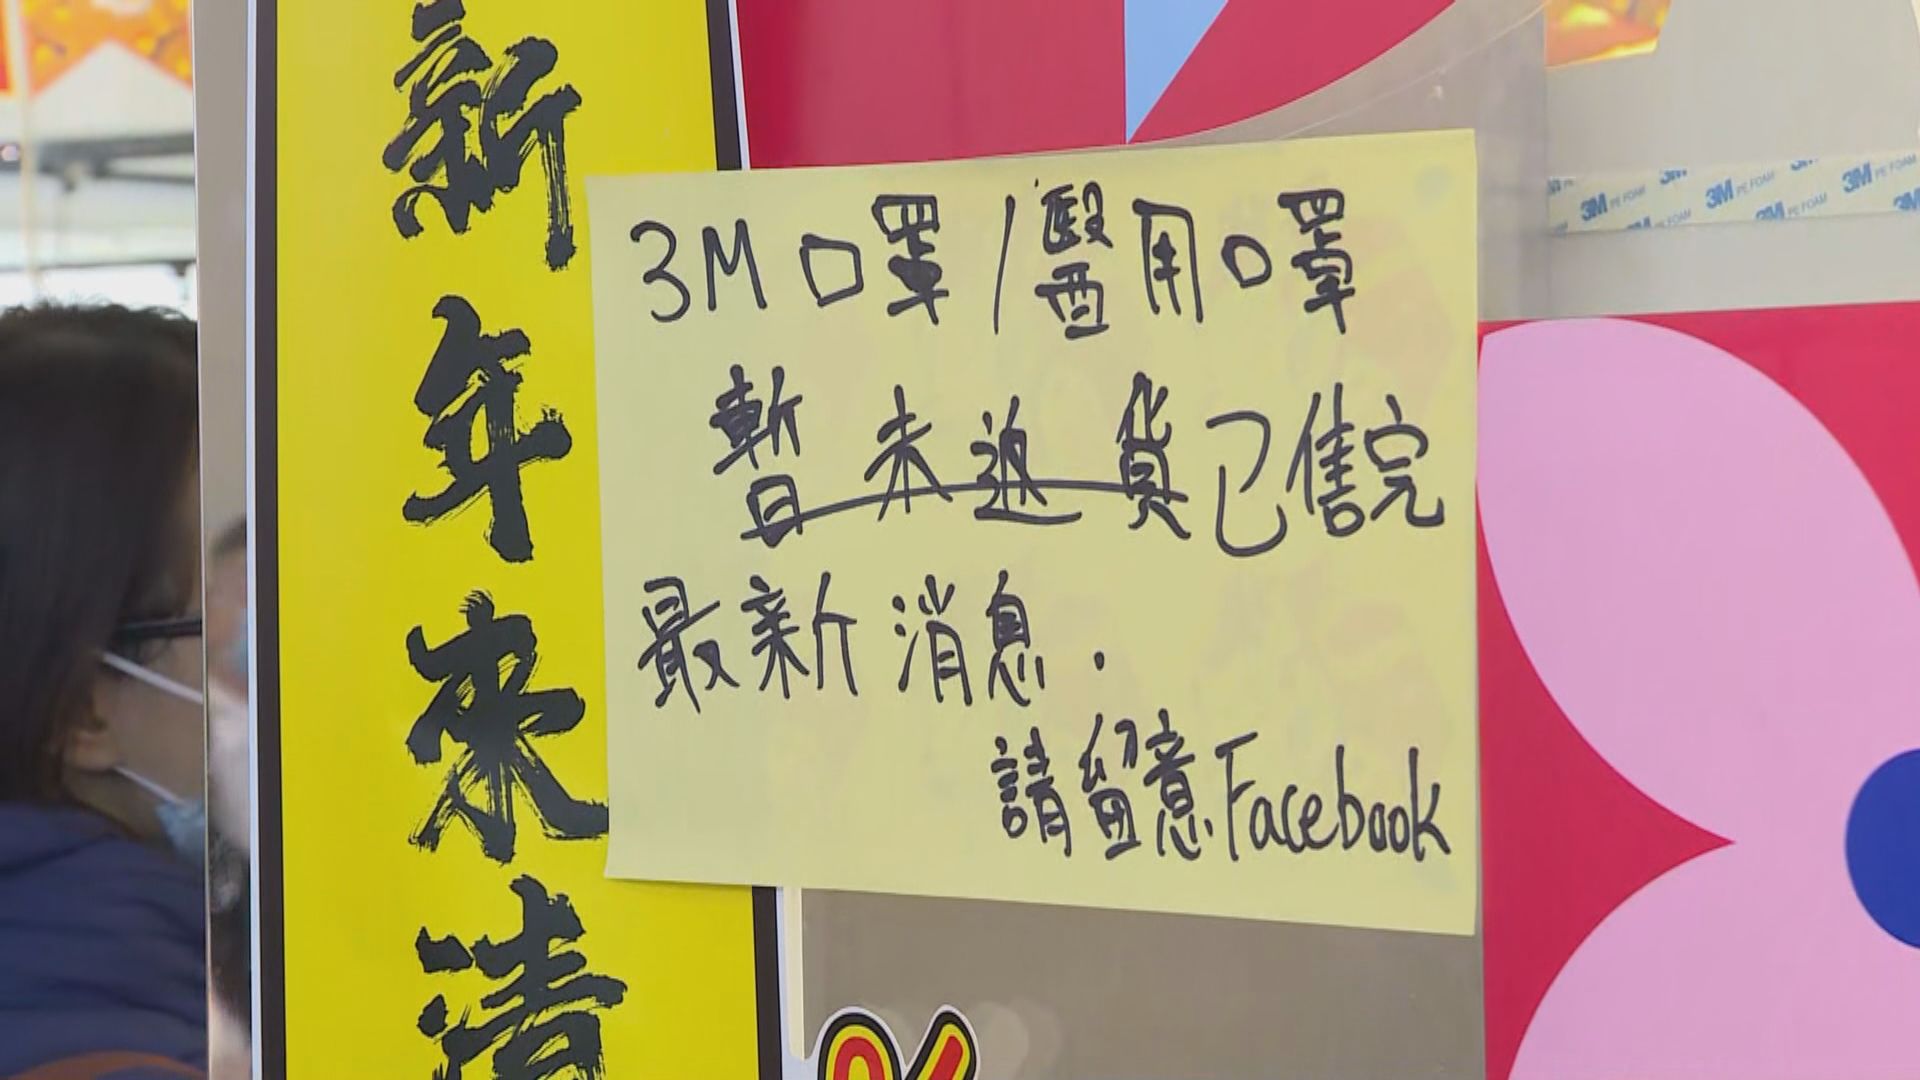 新年來清
3M口罩/醫用口罩
暫未返貨已售完
最新消息.
請留意Facebook
3M PE FOAM 3M PE FOAM 3M PE FOAM
%